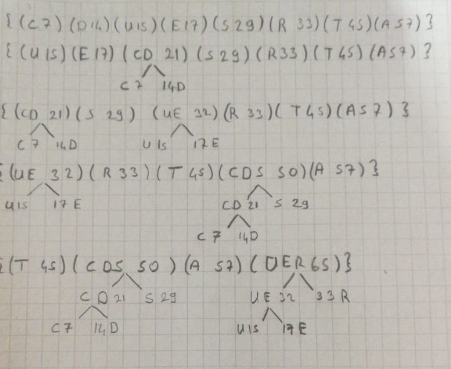 {(C7)(D14)(U15)(E17)(S29)(R 33)(T45)(A57)}
{(U15)(E17)(CD 21)(S29)(R33)(T45)(A57)}
C7 14D
{(CD 21)(S 29)(UE 32)(R 33)(T45)(A57)}
C7 14D U15 17E
{(UE 32)(R 33)(T 45)(CDS 50)(A 57)}
U15 17E CD 21 S 29
C7 14D
{(T 45)(CDS 50)(A 57)(UER 65)}
CD 21 S 29 UE 32 33 R
C7 14D U15 17E